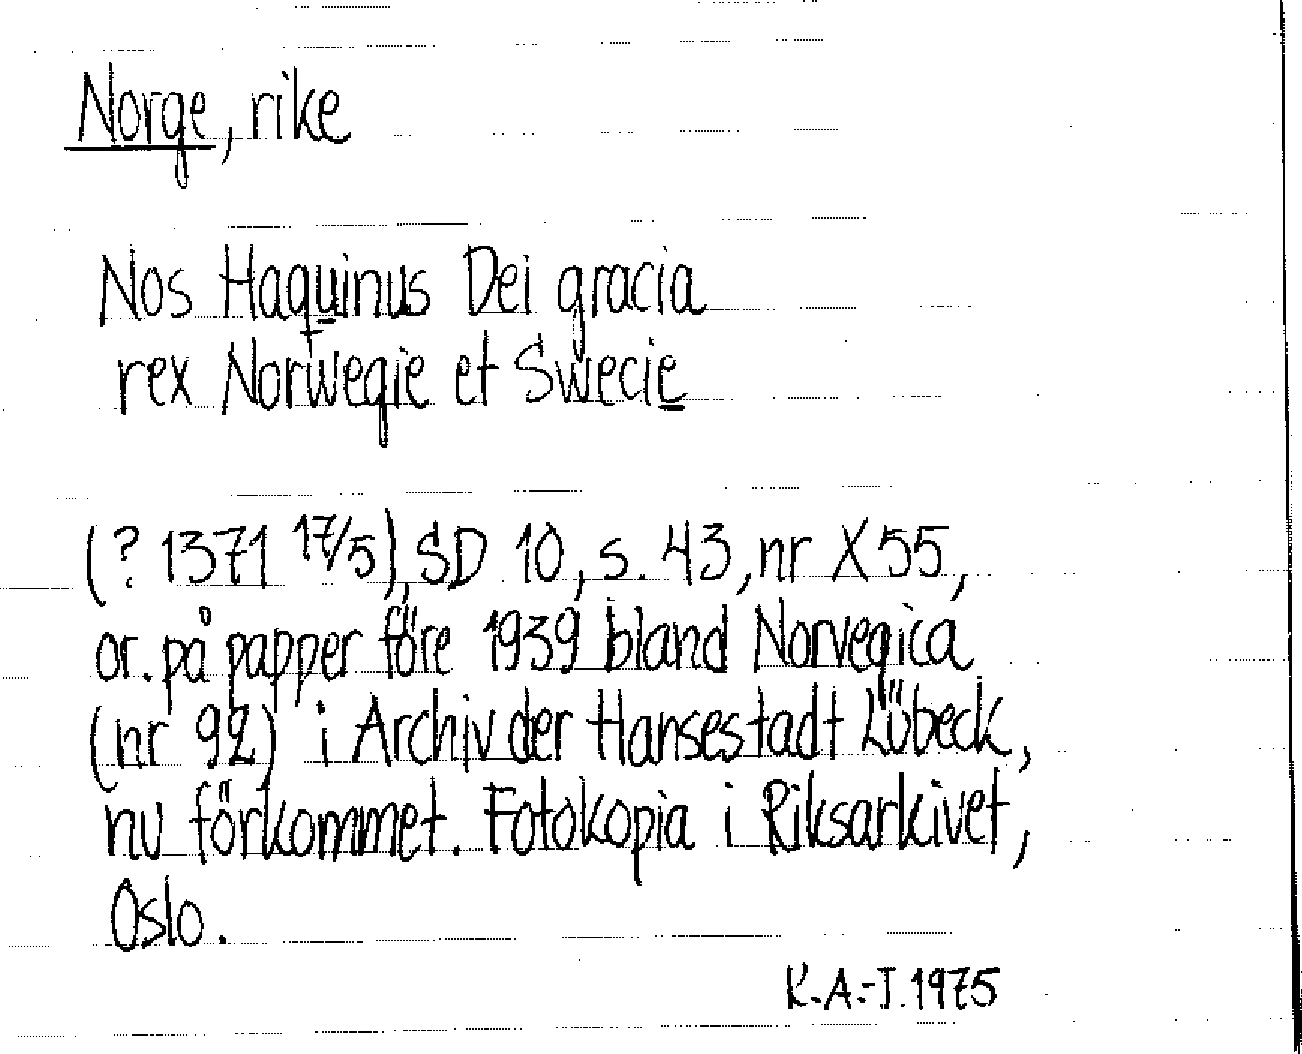 Norge, rike
Nos Haquinus Dei gracia
rex Norwegie et Swecie
(? 1371 17/5), SD 10, s. 43, nr X 55,
or. på papper före 1939 bland Norvegica
(nr 92) i Archiv der Hansestadt Lübeck,
nu förkommet. Fotokopia i Riksarkivet,
Oslo.
K.A.-J. 1975